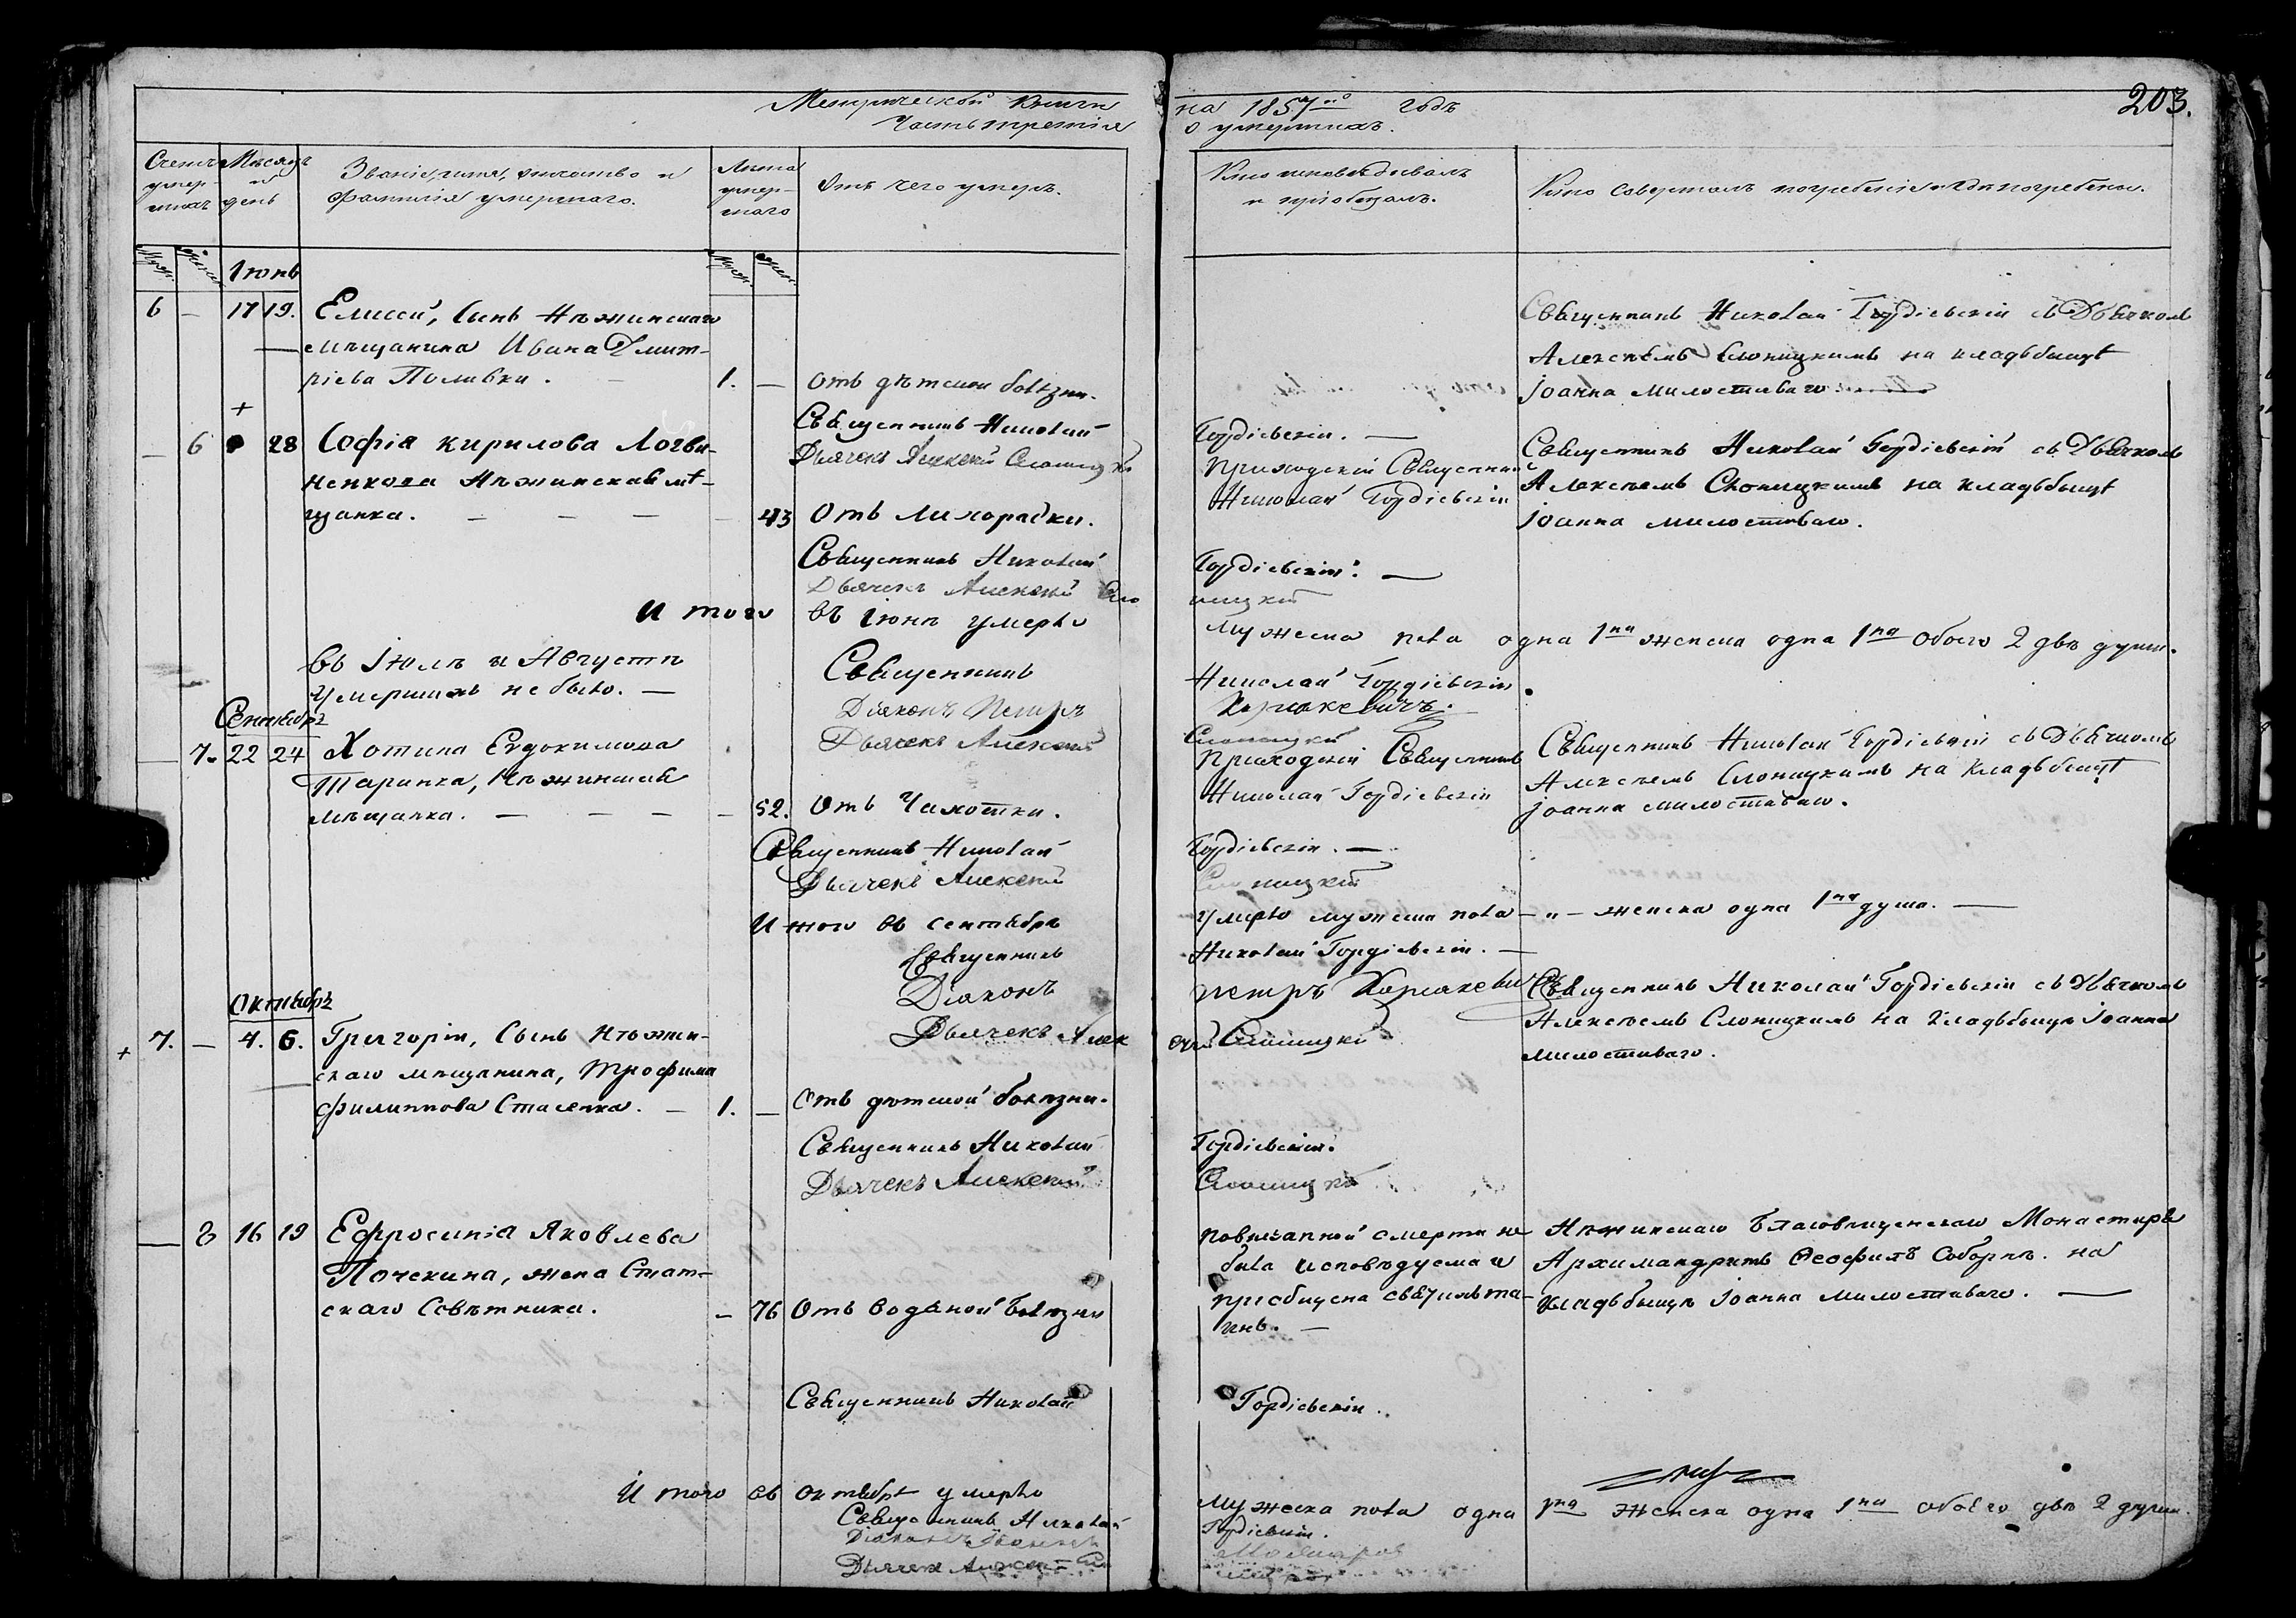 203.
Метрической книги на 1857го годъ
Часть третія о умершихъ.
Счетъ умершихъ
Мѣсяцъ и день
Званіе, имя, отчество и фамилія умершаго.
Лѣта умершаго
Отъ чего умеръ.
Кто исповѣдывалъ и пріобщалъ.
Кто совершалъ погребеніе и гдѣ погребены.
Іюнь
6 — 17 19. Елисей, сынъ Нѣжинскаго
мѣщанина Ивана Дмит-
ріева Поливки. — 1. — Отъ дѣтской болѣзни.
Священникъ Николай Гордіевскій съ Дьячкомъ
Алексѣемъ Слоницкимъ на кладьбищѣ
Іоанна милостиваго.
Священникъ Николай Гордіевскій. —
Дьячекъ Алексей Слоницкій
— 6 28 Софія Кирилова Логви-
ненкова Нѣжинская мѣ-
щанка. — — — — 43 Отъ лихорадки.
Приходскій Священникъ
Николай Гордіевскій
Священникъ Николай Гордіевскій съ Дьячкомъ
Алексѣемъ Слоницкимъ на кладьбищѣ
Іоанна милостиваго.
Священникъ Николай Гордіевскій. —
Дьячекъ Алексей Слоницкій
И того въ Іюнѣ умерло мужеска пола одна 1на женска одна 1на обоего 2 двѣ души.
въ Іюлѣ и Августѣ
умершихъ не было. —
Священникъ Николай Гордіевскій.
Діаконъ Петръ
Дьячекъ Алексей Слоницкій
Сентябрь
— 7. 22 24 Хотина Евдокимова
Таранка, Нѣжинская
мѣщанка. — — — — 52. Отъ Чахотки.
Приходскій Священникъ
Николай Гордіевскій
Священникъ Николай Гордіевскій съ Дьячкомъ
Алексѣемъ Слоницкимъ на кладьбищѣ
Іоанна милостиваго.
Священникъ Николай Гордіевскій. —
Дьячекъ Алексей Слоницкій
И того въ сентябрѣ умерло мужеска пола — „ — женска одна 1на душа. —
Священникъ Николай Гордіевскій. —
Діаконъ Петръ
Дьячекъ Алексей Слоницкій
Октябрь
7. — 4. 6. Григорій, Сынъ Нѣжин-
скаго мѣщанина, Трофима
Филиппова Стасенка. — 1. — Отъ дѣтской болѣзни.
Священникъ Николай Гордіевскій съ Дьячкомъ
Алексѣемъ Слоницкимъ на кладьбищѣ Іоанна
милостиваго.
Священникъ Николай Гордіевскій.
Дьячекъ Алексей Слоницкій
— 8 16 19 Ефросинія Яковлева
Почекина, жена Стат-
скаго Совѣтника. — 76 Отъ водяной болѣзни
по внезапной смерти не
была исповѣдуема и
пріобщена святыхъ та-
инъ. —
Нѣжинскаго Благовѣщенскаго Монастыря
Архимандритъ Ѳеофилъ Соборнѣ. на
кладьбищѣ Іоанна милостиваго. —
Священникъ Николай Гордіевскій.
И того въ октябрѣ умерло мужеска пола одна 1на женска одна 1на обоего двѣ 2 души.
Священникъ Николай Гордіевскій.
Дьячекъ Алексей